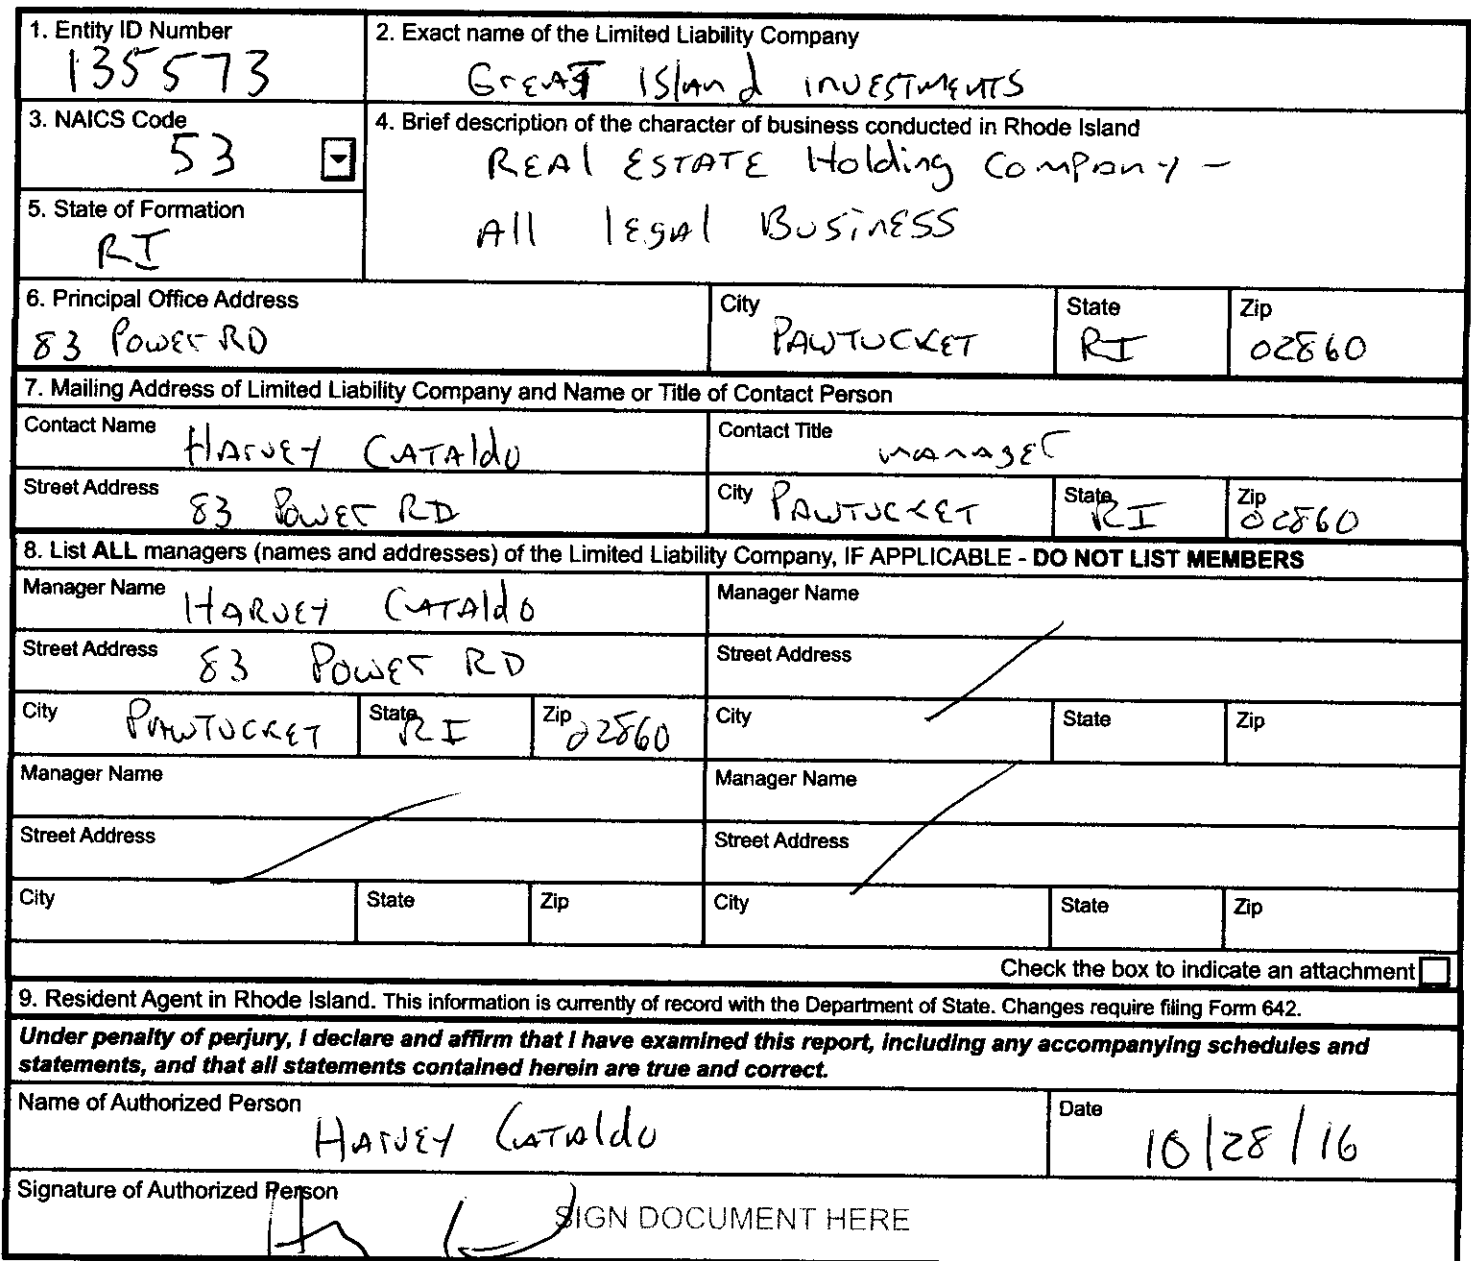 1. Entity ID Number
135573
2. Exact name of the Limited Liability Company
GreAT ISlAnd invESTMENTS
3. NAICS Code
53
4. Brief description of the character of business conducted in Rhode Island
REAl ESTATE Holding Company -
All legAl BusinESS
5. State of Formation
RI
6. Principal Office Address
83 Power RD
City
PAWTUCKET
State
RI
Zip
02860
7. Mailing Address of Limited Liability Company and Name or Title of Contact Person
Contact Name
HArvEy CATAldo
Contact Title
mANAgEr
Street Address
83 Power RD
City
PAWTUCKET
State
RI
Zip
02860
8. List ALL managers (names and addresses) of the Limited Liability Company, IF APPLICABLE - DO NOT LIST MEMBERS
Manager Name
HARvEy CATAldo
Manager Name
Street Address
83 Power RD
Street Address
City
PAWTUCKET
State
RI
Zip
02860
City
State
Zip
Manager Name
Manager Name
Street Address
Street Address
City
State
Zip
City
State
Zip
Check the box to indicate an attachment
9. Resident Agent in Rhode Island. This information is currently of record with the Department of State. Changes require filing Form 642.
Under penalty of perjury, I declare and affirm that I have examined this report, including any accompanying schedules and
statements, and that all statements contained herein are true and correct.
Name of Authorized Person
HArvEy CATAldo
Date
10/28/16
Signature of Authorized Person
SIGN DOCUMENT HERE